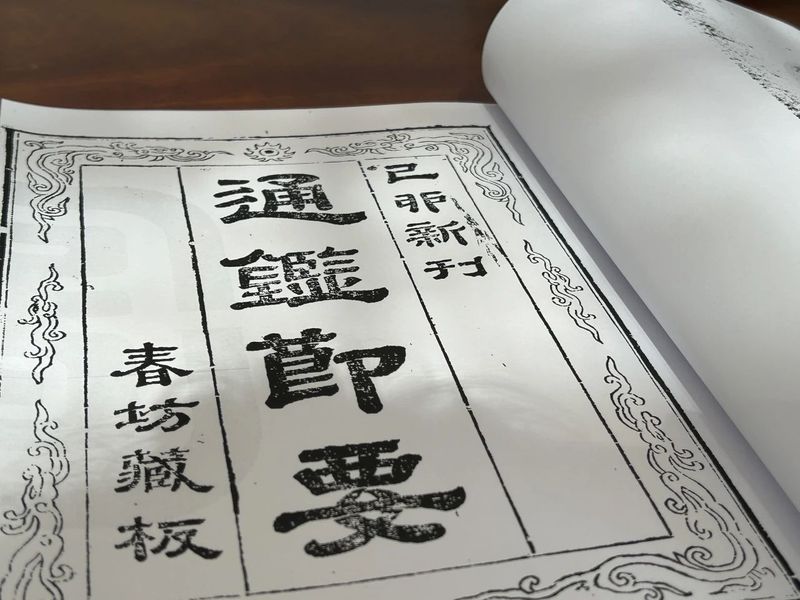 己卯新刊
通鑑節要
春坊藏板